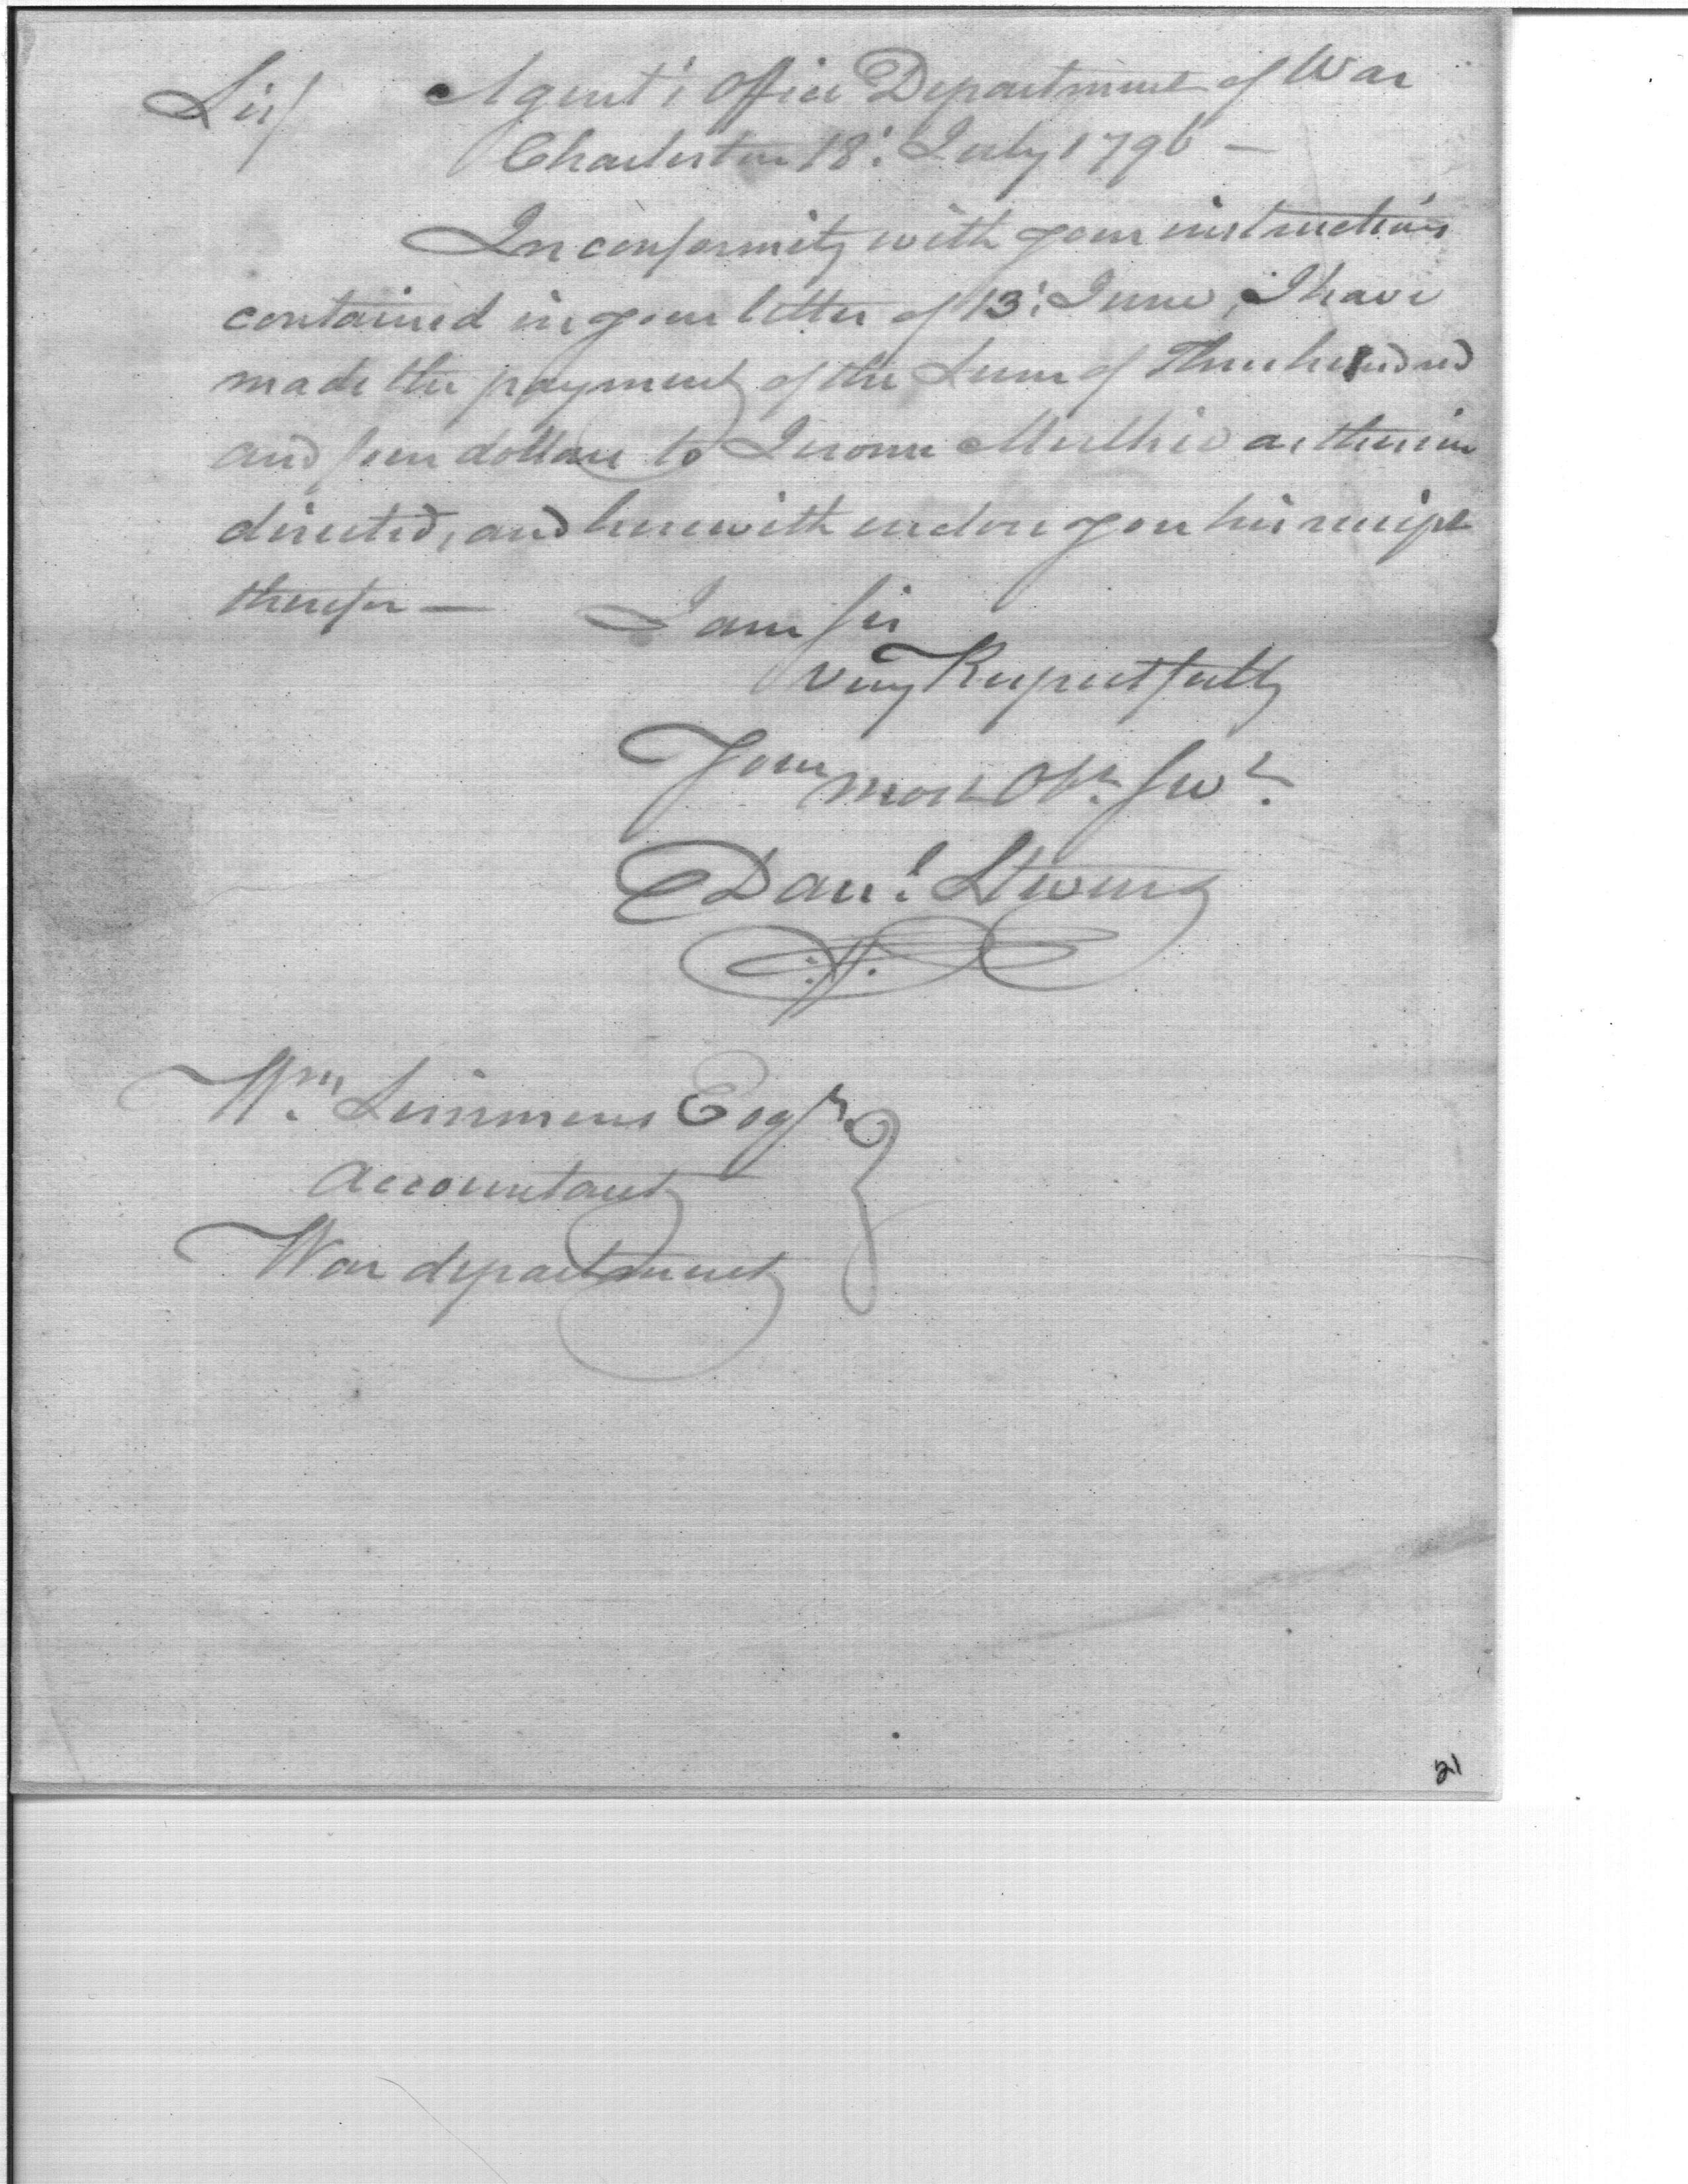 Sir/ Agent's Office Department of War
Charleston 18: July 1796 —
In conformity with your instructions
contained in your letter of 13: June, I have
made the payment of the Sum of Three hundred
and four dollars to Jerome as therein
directed, and herewith enclose you his receipt
therefor —
I am Sir
very Respectfully
Your most Obt. Servt.
Danl. Stevens
Wm. Simmons Esqr.
Accountant
War department
21